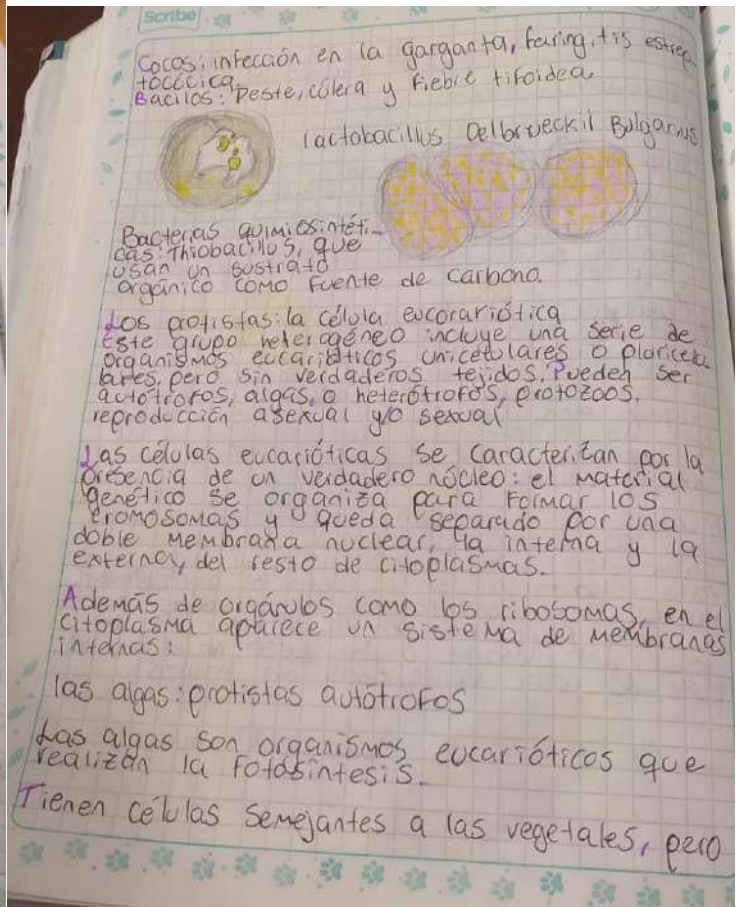 Scribe
Cocos: infección en la garganta, faring,tis estrep
tocócica.
Bacilos: Peste, cólera y fiebre tifoidea
lactobacillus Delbrueckii Bulgarius
Bacterias quimiosintéti-
cas: Thiobacillus, que
usan un sustrato
orgánico como fuente de carbono.
Los protistas: la célula eucorariótica
Este grupo heterogéneo incluye una serie de
organismos eucarióticos unicelulares o pluricelu
lares, pero sin verdaderos tejidos. Pueden ser
autótrofos, algas, o heterótrofos, protozoos.
reproducción asexual y/o sexual
Las células eucarióticas se caracterizan por la
presencia de un verdadero núcleo: el material
genético se organiza para formar los
cromosomas y queda separado por una
doble membrana nuclear, la interna y la
externa, del resto de citoplasmas.
Además de orgánulos como los ribosomas, en el
citoplasma aparece un sistema de membranas
internas:
las algas: protistas autótrofos
Las algas son organismos eucarióticos que
realizan la fotosíntesis.
Tienen células semejantes a las vegetales, pero